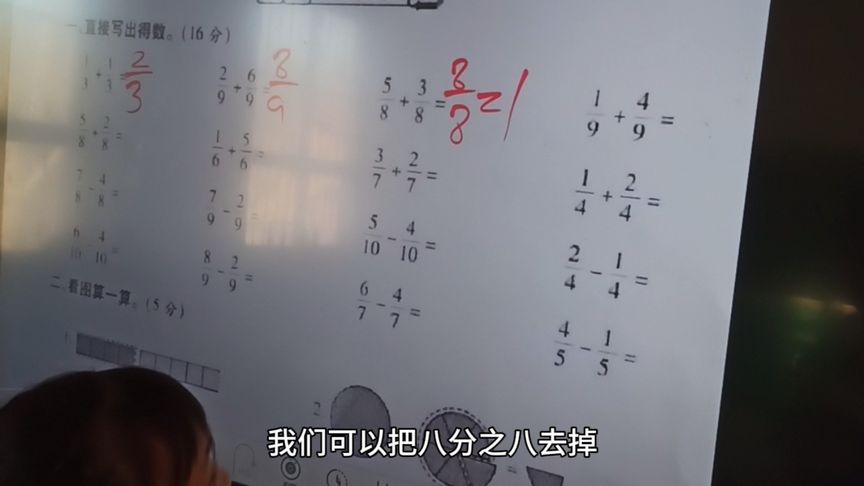 一、直接写出得数。(16 分)
1/3 + 1/3 2/3 2/9 + 6/9 = 8/9 5/8 + 3/8 = 8/8 = 1 1/9 + 4/9 =
5/8 + 2/8 = 1/6 + 5/6 = 3/7 + 2/7 = 1/4 + 2/4 =
7/8 - 4/8 = 7/9 - 2/9 = 5/10 - 4/10 = 2/4 - 1/4 =
6/10 - 4/10 = 8/9 - 2/9 = 6/7 - 4/7 = 4/5 - 1/5 =
二、看图算一算。(5 分)
1.
2
=
我们可以把八分之八去掉